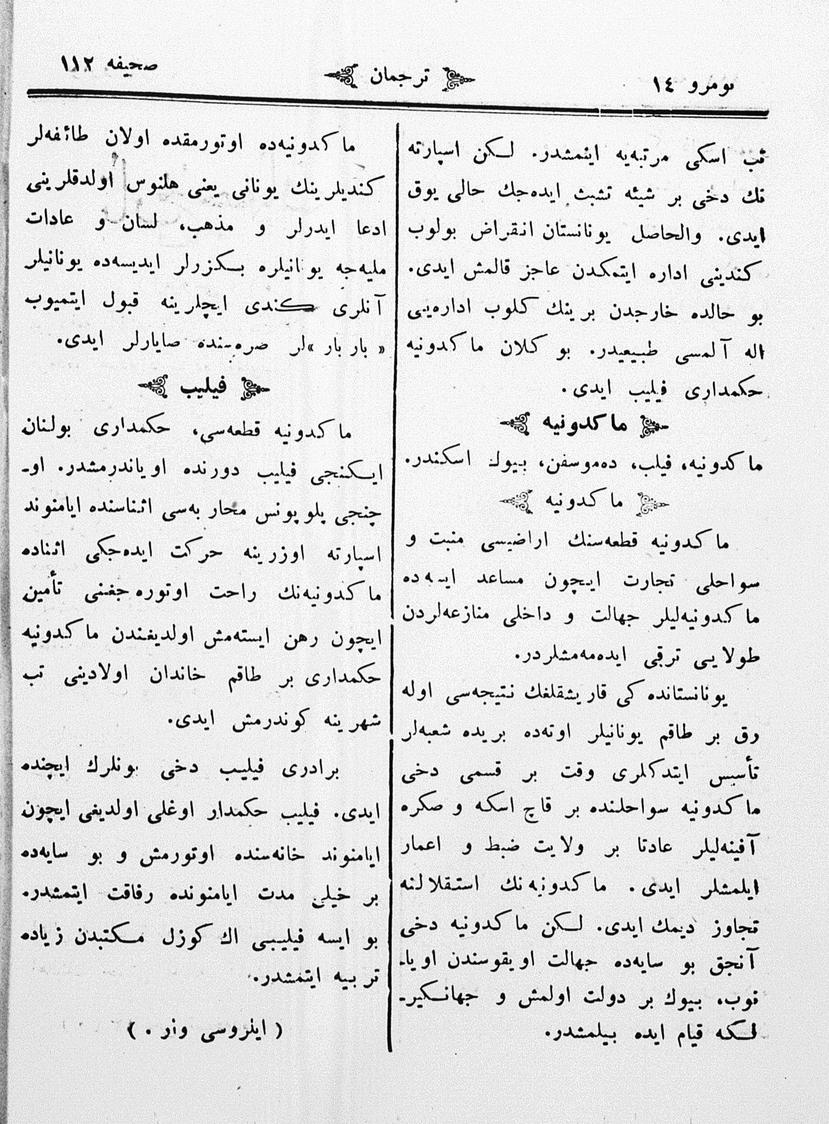 نومرو ١٤
ترجمان
صحیفه ١١٢
ثب اسکی مرتبه‌یه ایتمشدر. لکن اسپارته
نك دخی بر شیئه تشبث ایده‌جك حالی یوق
ایدی. والحاصل یونانستان انقراض بولوب
کندینی اداره ایتمکدن عاجز قالمش ایدی.
بو حالده خارجدن برینك کلوب اداره‌یی
اله آلمسی طبیعیدر. بو کلان ماکدونیه
حکمداری فیلیب ایدی.
ماکدونیه
ماکدونیه، فیلب، ده‌موسفن، بیوك اسکندر.
ماکدونیه
ماکدونیه قطعه‌سنك اراضیسی منبت و
سواحلی تجارت ایچون مساعد ایسه‌ده
ماکدونیه‌لیلر جهالت و داخلی منازعه‌لردن
طولایی ترقی ایده‌مه‌مشلردر.
یونانستانده کی قاریشقلغك نتیجه‌سی اوله
رق بر طاقم یونانیلر اوته‌ده بریده شعبه‌لر
تأسیس ایتدکلری وقت بر قسمی دخی
ماکدونیه سواحلنده بر قاچ اسکه و صکره
آفینه‌لیلر عادتا بر ولایت ضبط و اعمار
ایلمشلر ایدی. ماکدونیه‌نك استقلالنه
تجاوز دیمك ایدی. لکن ماکدونیه دخی
آنجق بو سایه‌ده جهالت اویقوسندن اویا۔
نوب، بیوك بر دولت اولمش و جهانگیر۔
لکه قیام ایده بیلمشدر.
ماکدونیه‌ده اوتورمقده اولان طائفه‌لر
کندیلرینك یونانی یعنی هلنوس اولدقلرینی
ادعا ایدرلر و مذهب، لسان و عادات
ملیه‌جه یونانیلره بکزرلر ایدیسه‌ده یونانیلر
آنلری کندی ایچلرینه قبول ایتمیوب
« باربار »لر صره‌سنده صایارلر ایدی.
فیلیب
ماکدونیه قطعه‌سی، حکمداری بولنان
ایکنجی فیلیب دورنده اویاندرمشدر. او۔
چنجی پلوپونس محاربه‌سی اثناسنده ایامنوند
اسپارته اوزرینه حرکت ایده‌جکی اثناده
ماکدونیه‌نك راحت اوتوره‌جغنی تأمین
ایچون رهن ایسته‌مش اولدیغندن ماکدونیه
حکمداری بر طاقم خاندان اولادینی تب
شهرینه کوندرمش ایدی.
برادری فیلیب دخی بونلرك ایچنده
ایدی. فیلیب حکمدار اوغلی اولدیغی ایچون
ایامنوند خانه‌سنده اوتورمش و بو سایه‌ده
بر خیلی مدت ایامنونده رفاقت ایتمشدر.
بو ایسه فیلیبی اك کوزل مکتبدن زیاده
تربیه ایتمشدر.
( ایلروسی وار . )